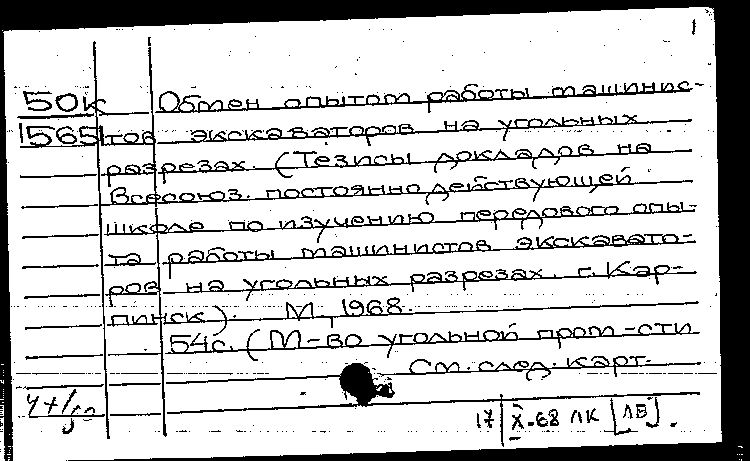 1
50к Обмен опытом работы машинис-
15651 тов экскаваторов на угольных
разрезах. (Тезисы докладов на
Всесоюз. постоянно действующей
школе по изучению передового опы-
та работы машинистов экскавато-
ров на угольных разрезах. г. Кар-
пинск). М., 1968.
54с. (М-во угольной пром-сти
См. след. карт.
17 X-68 ЛК [ЛБ].